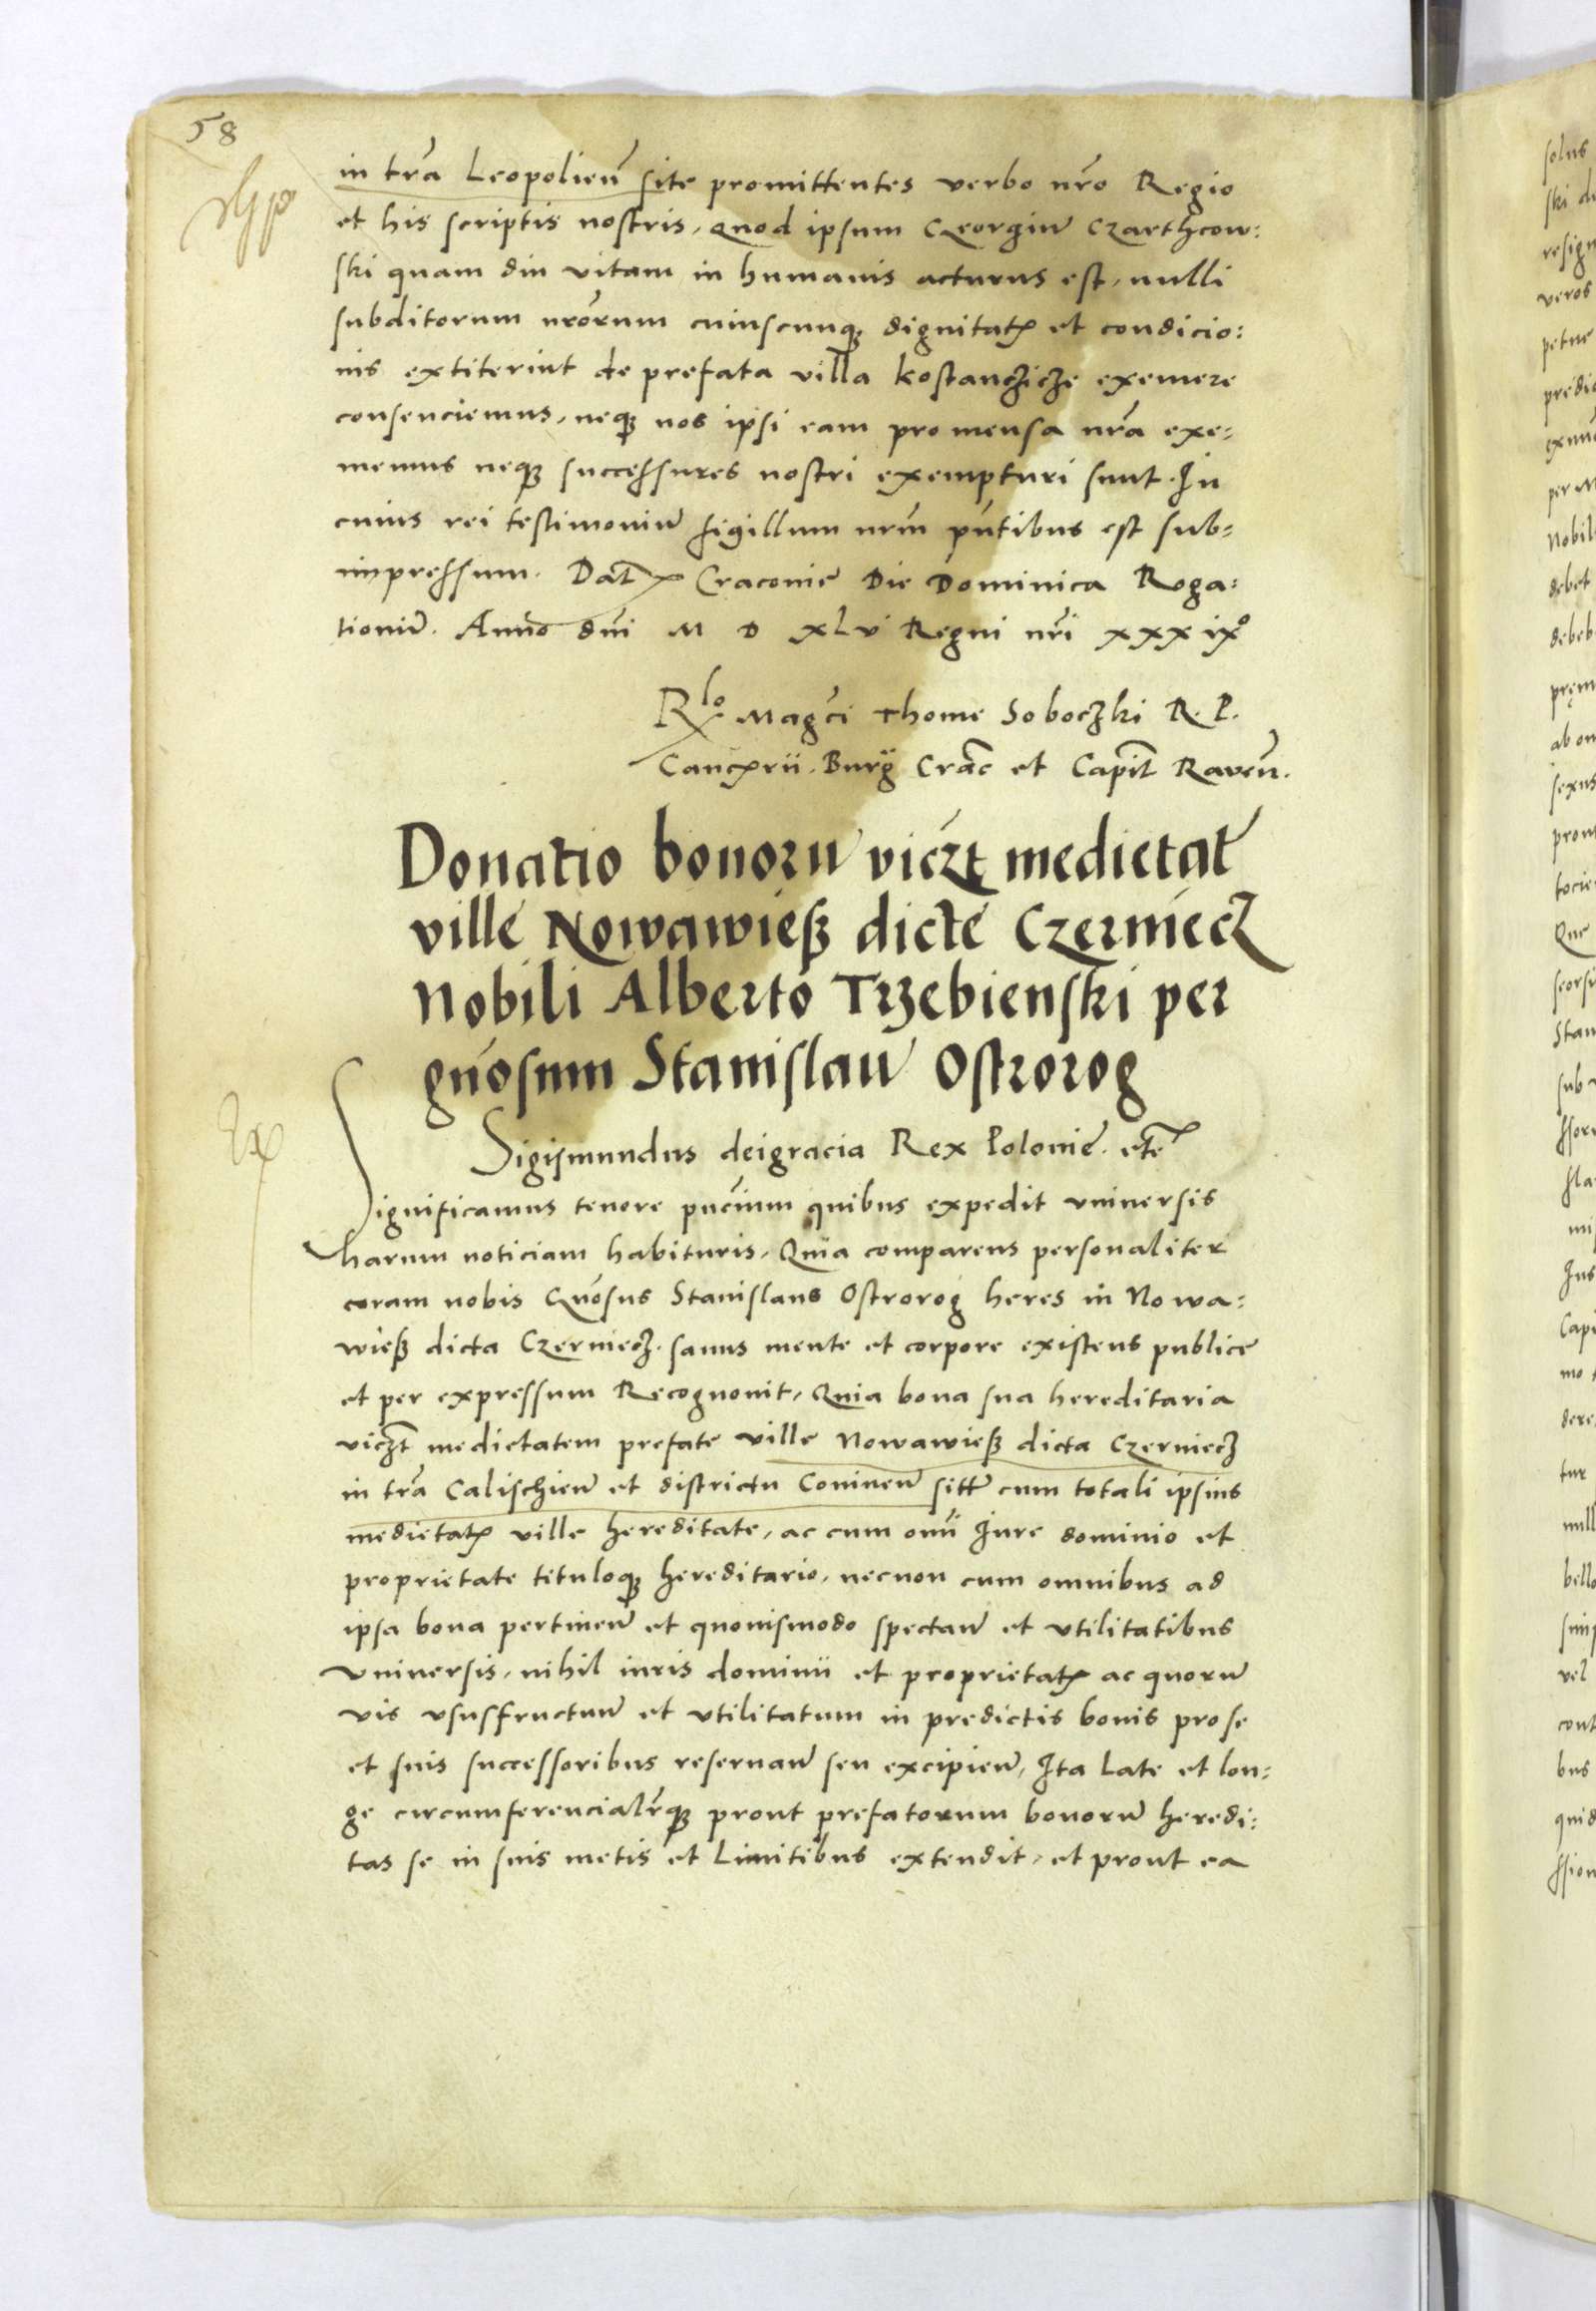 58
in tra͞ Leopolien͞ site promittentes verbo nr͞o Regio
et his scriptis nostris, Quod ipsum Georgiu͞ Czarthcow:
ski quam diu vitam in humanis acturus est, nulli
subditorum nr͞orum cuiuscunqꝫ dignitatꝭ et condicio:
nis extiterint de prefata villa Kostancziche exemere
consenciemus, neqꝫ nos ipsi eam pro mensa nr͞a exe-
memus neqꝫ successures nostri exempturi sunt. In
cuius rei testimoniu͞ sigillum nrm͞ pn͞tibus est sub-
impressum. Dat͞ Cracovie Die Dominica Roga:
tioniu͞. Anno dn͞i M D XLV Regni nr͞i xxxixº
Rlo Magci͞ Thome Soboczki R. P.
Cancꝭrii. Burg͞ Crac͞ et Capit͞ Raven͞.
Donatio bonoru͞ viczt͞ medietat͞
ville Nowawieß dicte Czerniecz
Nobili Alberto Trzebienski per
gn͞osum Stanislau͞ Ostrorog
Ex
Sigismundus dei gracia Rex Polonie. etc͞
Significamus tenore pn͞cium quibus expedit vniuersis
harum noticiam habituris, Quia comparens personaliter
coram nobis Gn͞osus Stanislaus Ostrorog heres in Nowa:
wieß dicta Czerniecz. sanus mente et corpore existens publice
et per expressum Recognouit, Quia bona sua hereditaria
viczt͞ medietatem prefate ville Nowawieß dicta Czerniecz
in tra͞ Calischien͞ et districtu Coninen͞ sitt͞ cum totali ipsius
medietatꝭ ville hereditate, ac cum omi͞ Iure dominio et
proprietate tituloqꝫ hereditario, necnon cum omnibus ad
ipsa bona pertinen͞ et quouismodo spectan͞ et vtilitatibus
vniuersis, nihil iuris dominii et proprietatꝭ ac quoru͞
vis vsusfructuu͞ et vtilitatum in predictis bonis pro se
et suis successoribus reseruan͞ seu excipien͞, Ita Late et lon:
ge circumferencialr͞qꝫ prout prefatorum bonoru͞ heredi:
tas se in suis metis et Limitibus extendit, et prout ea